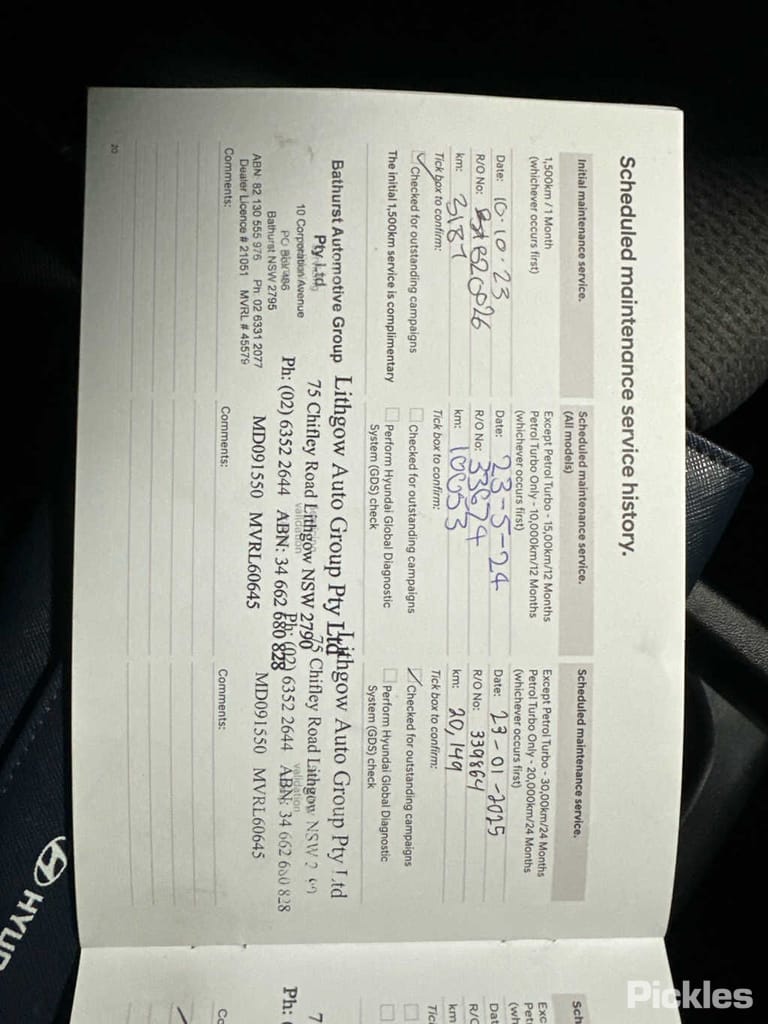 Scheduled maintenance service history.
Initial maintenance service.
1,500km / 1 Month
(whichever occurs first)
Date: 10.10.23
R/O No: B20826
km: 3187
Tick box to confirm:
Checked for outstanding campaigns
The initial 1,500km service is complimentary
Bathurst Automotive Group
Pty Ltd
10 Corporation Avenue
PO Box 486
Bathurst NSW 2795
ABN: 82 130 555 976 Ph: 02 6331 2077
Dealer Licence # 21051 MVRL # 45579
Comments:
Scheduled maintenance service.
(All models)
Except Petrol Turbo - 15,00km/12 Months
Petrol Turbo Only - 10,000km/12 Months
(whichever occurs first)
Date: 23-5-24
R/O No: 33674
km: 10053
Tick box to confirm:
Checked for outstanding campaigns
Perform Hyundai Global Diagnostic
System (GDS) check
Lithgow Auto Group Pty Ltd
75 Chifley Road Lithgow NSW 2790
validation
Ph: (02) 6352 2644 ABN: 34 662 680 828
MD091550 MVRL60645
Comments:
Scheduled maintenance service.
Except Petrol Turbo - 30,00km/24 Months
Petrol Turbo Only - 20,000km/24 Months
(whichever occurs first)
Date: 23-01-2025
R/O No: 339864
km: 20,149
Tick box to confirm:
Checked for outstanding campaigns
Perform Hyundai Global Diagnostic
System (GDS) check
Lithgow Auto Group Pty Ltd
75 Chifley Road Lithgow NSW
validation
Ph: (02) 6352 2644 ABN: 34 662 680 828
MD091550 MVRL60645
Comments:
20
Sch
Exc
Pet
(wh
Dat
R/O
km
Tic
7
Ph: (
Co
HYUN
Pickles